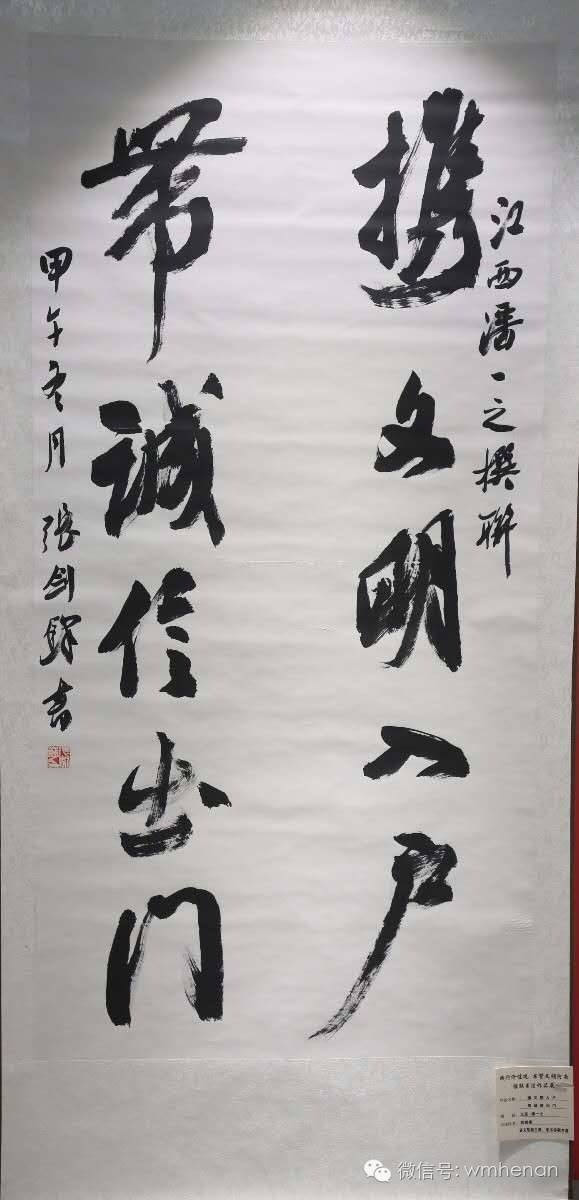 江西潘一之撰联
携文明入户
带诚信出门
甲午冬月 张剑锋书
微信号: wmhenan